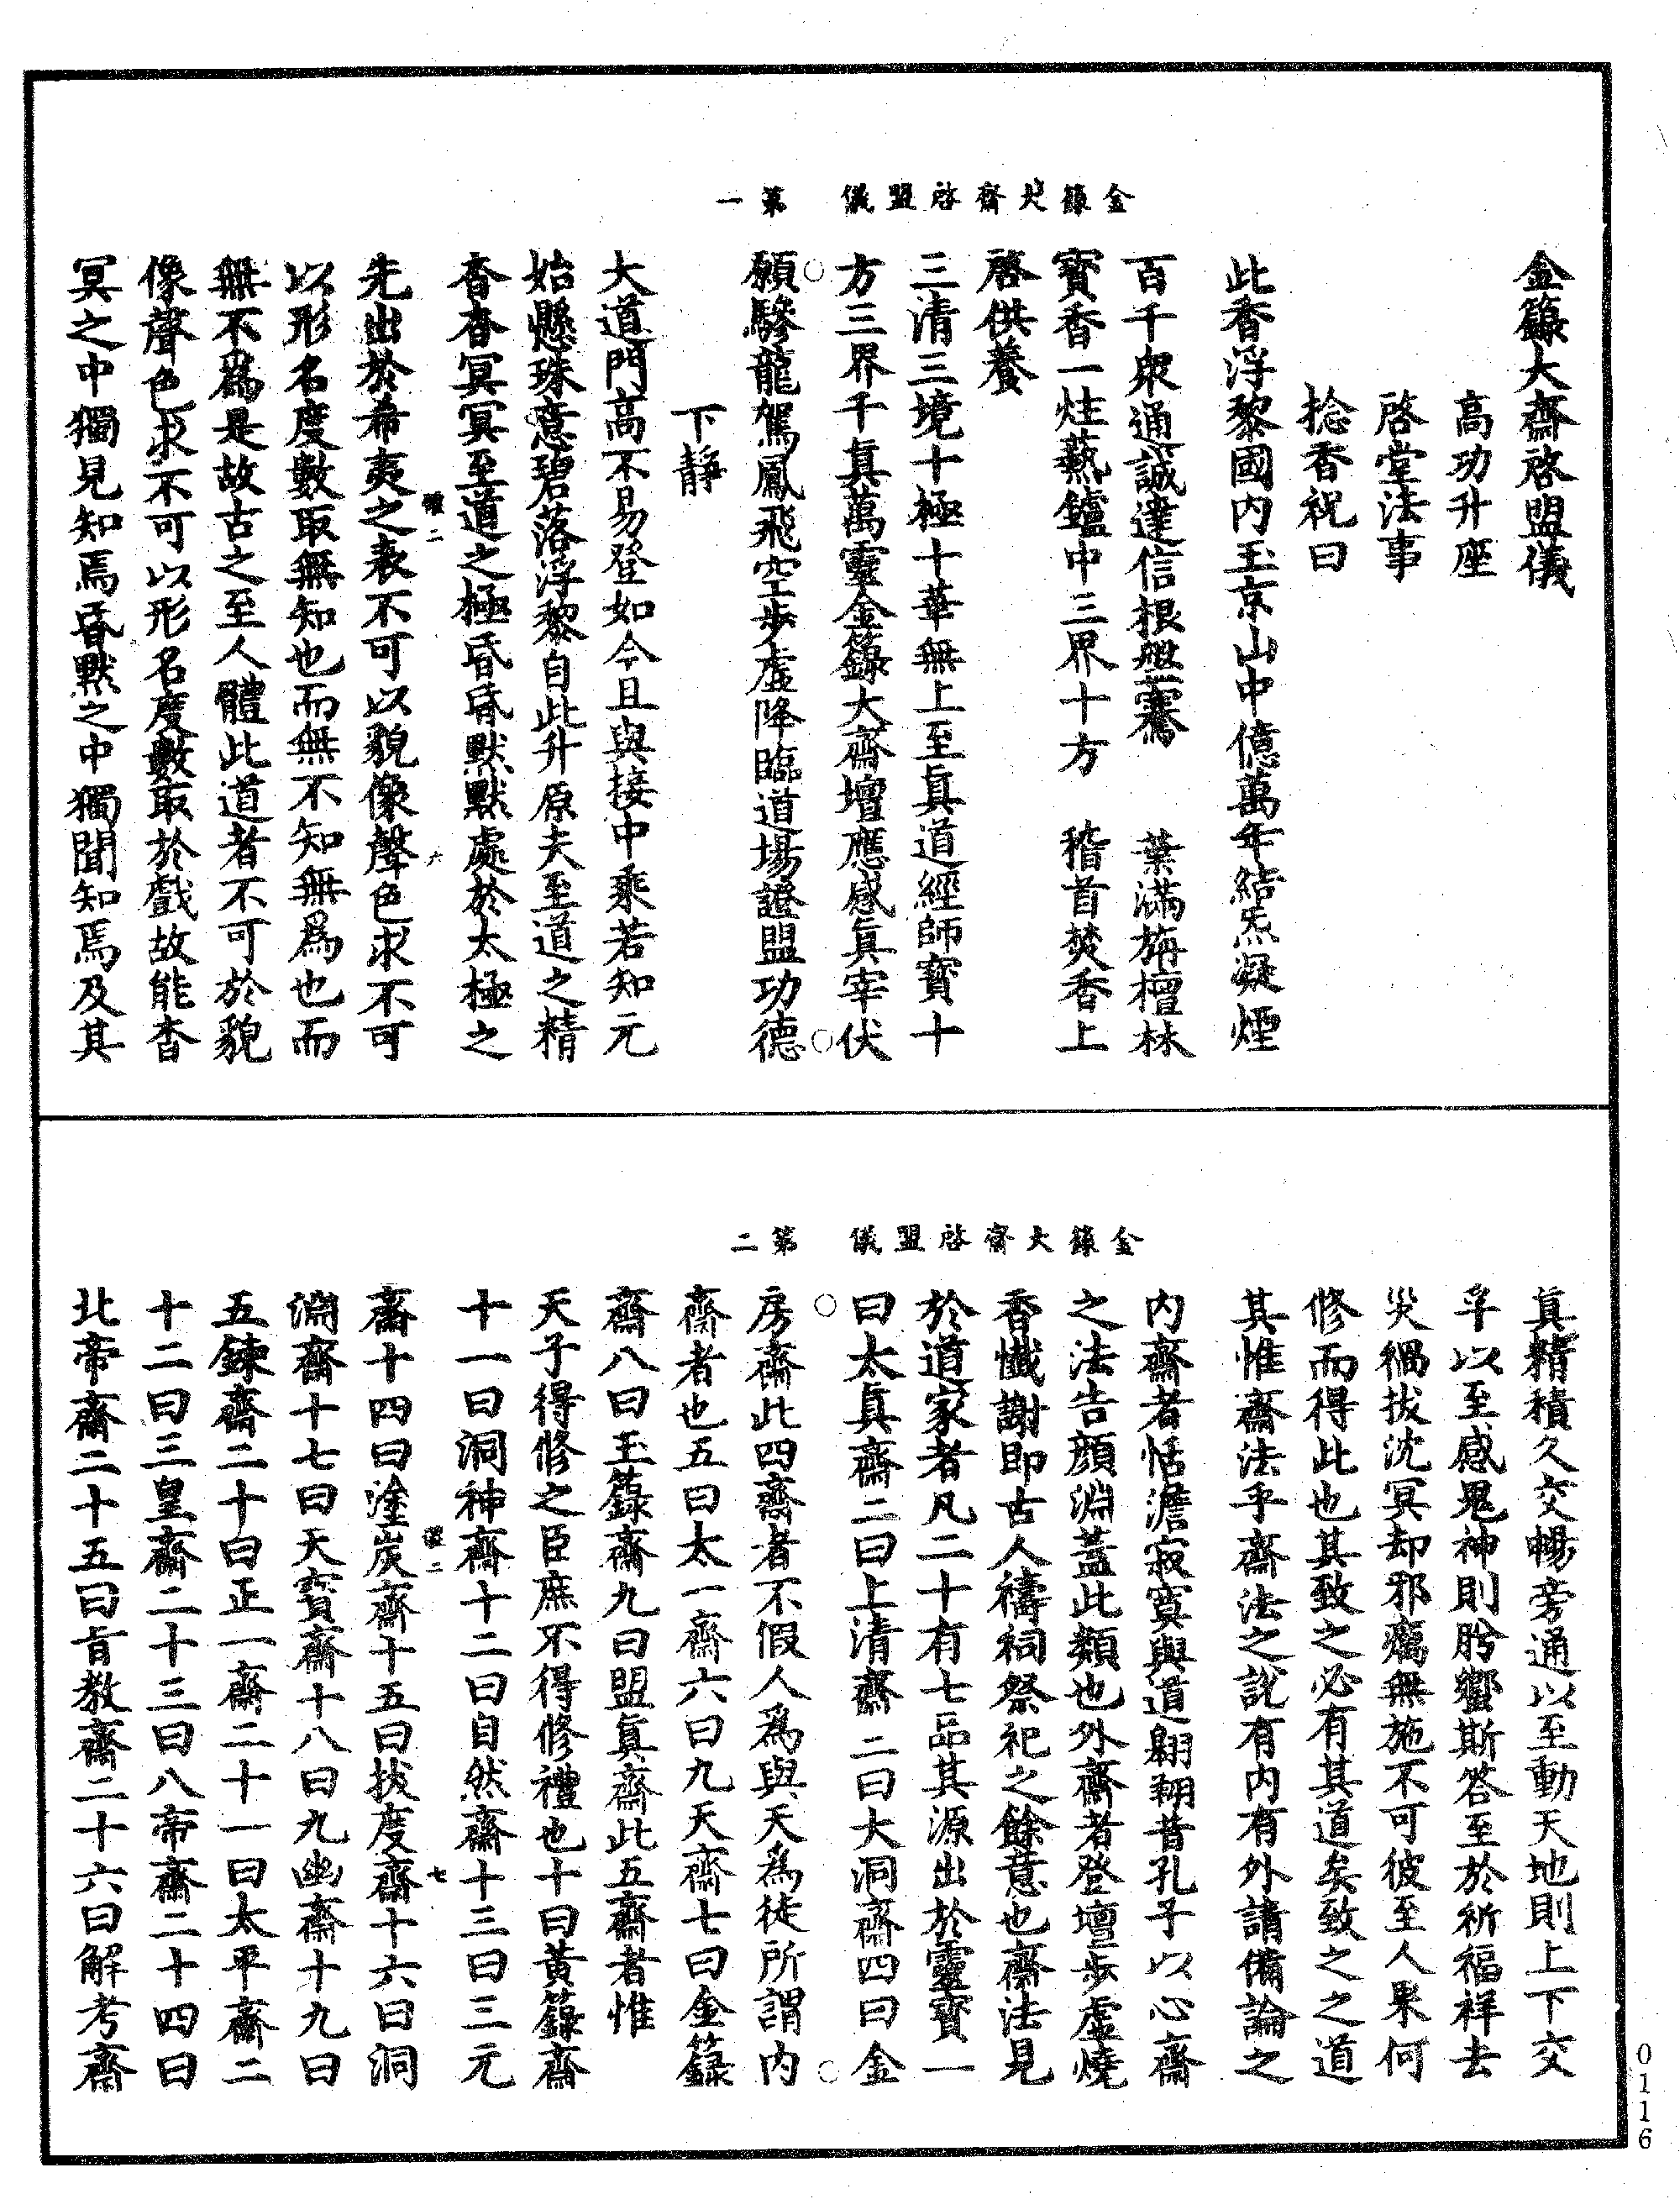 金籙大齋啓盟儀　第一
金籙大齋啓盟儀
高功升座
啓堂法事
捻香祝曰
此香浮黎國内玉京山中億萬年結炁凝煙
百千衆通誠達信根盤騫　葉滿旃檀林
寳香一炷爇鑪中三界十方　稽首焚香上
啓供養
三清三境十極十華無上至真道經師寳十
方三界千真萬靈金籙大齋壇應感真宰伏
願驂龍駕鳳飛空歩虚降臨道場證盟功德
下靜
大道門高不易登如今且與接中乘若知元
始懸珠意碧落浮黎自此升原夫至道之精
杳杳冥冥至道之極昏昏默默處於太極之
先出於希夷之表不可以貌像聲色求不可
以形名度數取無知也而無不知無爲也而
無不爲是故古之至人體此道者不可於貌
像聲色求不可以形名度數取於戲故能杳
冥之中獨見知焉昏默之中獨聞知焉及其
二
六
金籙大齋啓盟儀　第二
真精積久交暢旁通以至動天地則上下交
孚以至感鬼神則肸蠁斯答至於祈福祥去
災禍拔沈冥却邪癘無施不可彼至人果何
修而得此也其致之必有其道矣致之之道
其惟齋法乎齋法之說有内有外請備論之
内齋者恬澹寂寞與道翺翔昔孔子以心齋
之法告顔淵蓋此類也外齋者登壇歩虚燒
香懺謝即古人禱祠祭祀之餘意也齋法見
於道家者凡二十有七品其源出於靈寳一
曰太真齋二曰上清齋　二曰大洞齋四曰金
房齋此四齋者不假人爲與天爲徒所謂内
齋者也五曰太一齋六曰九天齋七曰金籙
齋八曰玉籙齋九曰盟真齋此五齋者惟
天子得修之臣庶不得修禮也十曰黄籙齋
十一曰洞神齋十二曰自然齋十三曰三元
齋十四曰塗炭齋十五曰拔度齋十六曰洞
淵齋十七曰天寳齋十八曰九幽齋十九曰
五鍊齋二十曰正一齋二十一曰太平齋二
十二曰三皇齋二十三曰八帝齋二十四曰
北帝齋二十五曰旨教齋二十六曰解考齋
二
七
0116